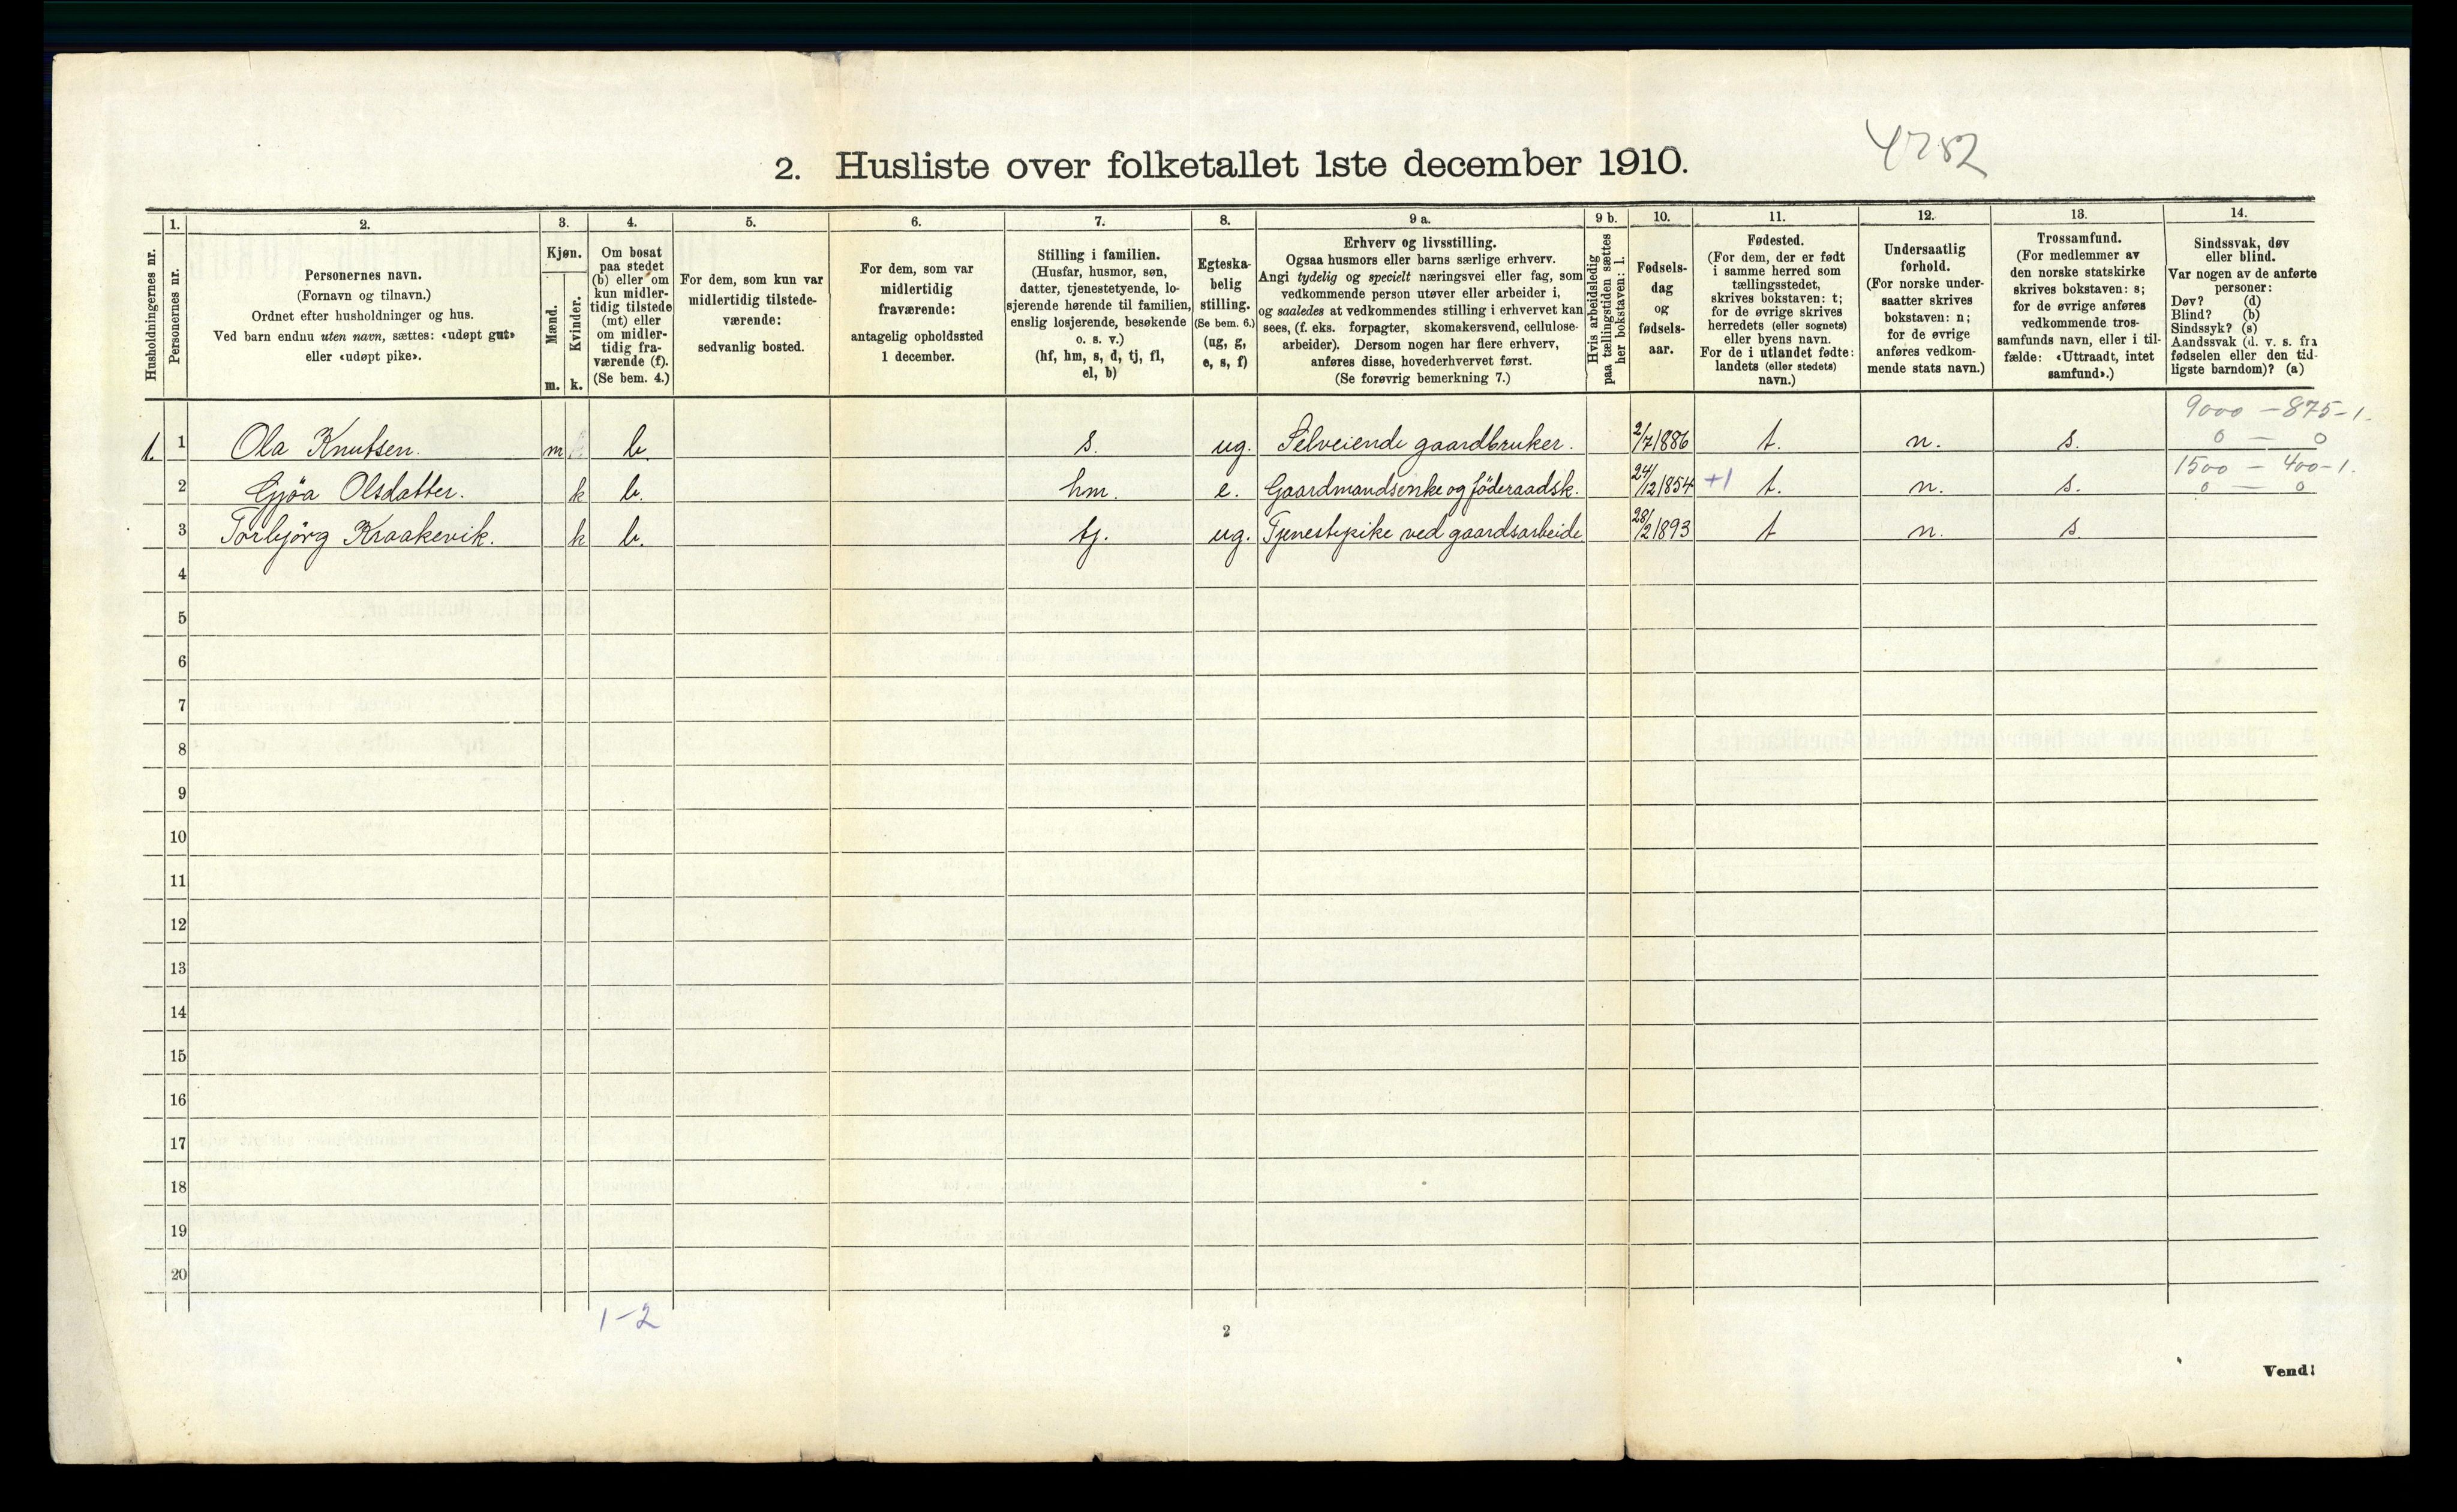 4282
2. Husliste over folketallet 1ste december 1910.
Husholdningernes nr.
1.
Personernes nr.
2.
Personernes navn.
(Fornavn og tilnavn.)
Ordnet efter husholdninger og hus.
Ved barn endnu uten navn, sættes: «udøpt gut»
eller «udøpt pike».
3.
Kjøn.
Mænd.
Kvinder.
m.
k.
4.
Om bosat
paa stedet
(b) eller om
kun midler-
tidig tilstede
(mt) eller
om midler-
tidig fra-
værende (f).
(Se bem. 4.)
5.
For dem, som kun var
midlertidig tilstede-
værende:
sedvanlig bosted.
6.
For dem, som var
midlertidig
fraværende:
antagelig opholdssted
1 december.
7.
Stilling i familien.
(Husfar, husmor, søn,
datter, tjenestetyende, lo-
sjerende hørende til familien,
enslig losjerende, besøkende
o. s. v.)
(hf, hm, s, d, tj, fl,
el, b)
8.
Egteska-
belig
stilling.
(Se bem. 6.)
(ug, g,
e, s, f)
9 a.
Erhverv og livsstilling.
Ogsaa husmors eller barns særlige erhverv.
Angi tydelig og specielt næringsvei eller fag, som
vedkommende person utøver eller arbeider i,
og saaledes at vedkommendes stilling i erhvervet kan
sees, (f. eks. forpagter, skomakersvend, cellulose-
arbeider). Dersom nogen har flere erhverv,
anføres disse, hovederhvervet først.
(Se forøvrig bemerkning 7.)
9 b.
Hvis arbeidsledig
paa tællingstiden sættes
her bokstaven: l.
10.
Fødsels-
dag
og
fødsels-
aar.
11.
Fødested.
(For dem, der er født
i samme herred som
tællingsstedet,
skrives bokstaven: t;
for de øvrige skrives
herredets (eller sognets)
eller byens navn.
For de i utlandet fødte:
landets (eller stedets)
navn.)
12.
Undersaatlig
forhold.
(For norske under-
saatter skrives
bokstaven: n;
for de øvrige
anføres vedkom-
mende stats navn.)
13.
Trossamfund.
(For medlemmer av
den norske statskirke
skrives bokstaven: s;
for de øvrige anføres
vedkommende tros-
samfunds navn, eller i til-
fælde: «Uttraadt, intet
samfund».)
14.
Sindssvak, døv
eller blind.
Var nogen av de anførte
personer:
Døv? (d)
Blind? (b)
Sindssyk? (s)
Aandssvak (d. v. s. fra
fødselen eller den tid-
ligste barndom)? (a)
9000 – 875 – 1.
1. 1 Ola Knutsen. m b. s. ug. Selveiende gaardbruker. 2/7 1886 t. n. s. 0 – 0
1500 – 400 – 1.
2 Gjøa Olsdatter. k b. hm. e. Gaardmandsenke og föderaadsk. 24/12 1854 +1 t. n. s. 0 – 0
3 Torbjörg Kraakevik. k b. tj. ug. Tjenestepike ved gaardsarbeide 28/2 1893 t n. s.
4
5
6
7
8
9
10
11
12
13
14
15
16
17
18
19
20
1 – 2
2
Vend!